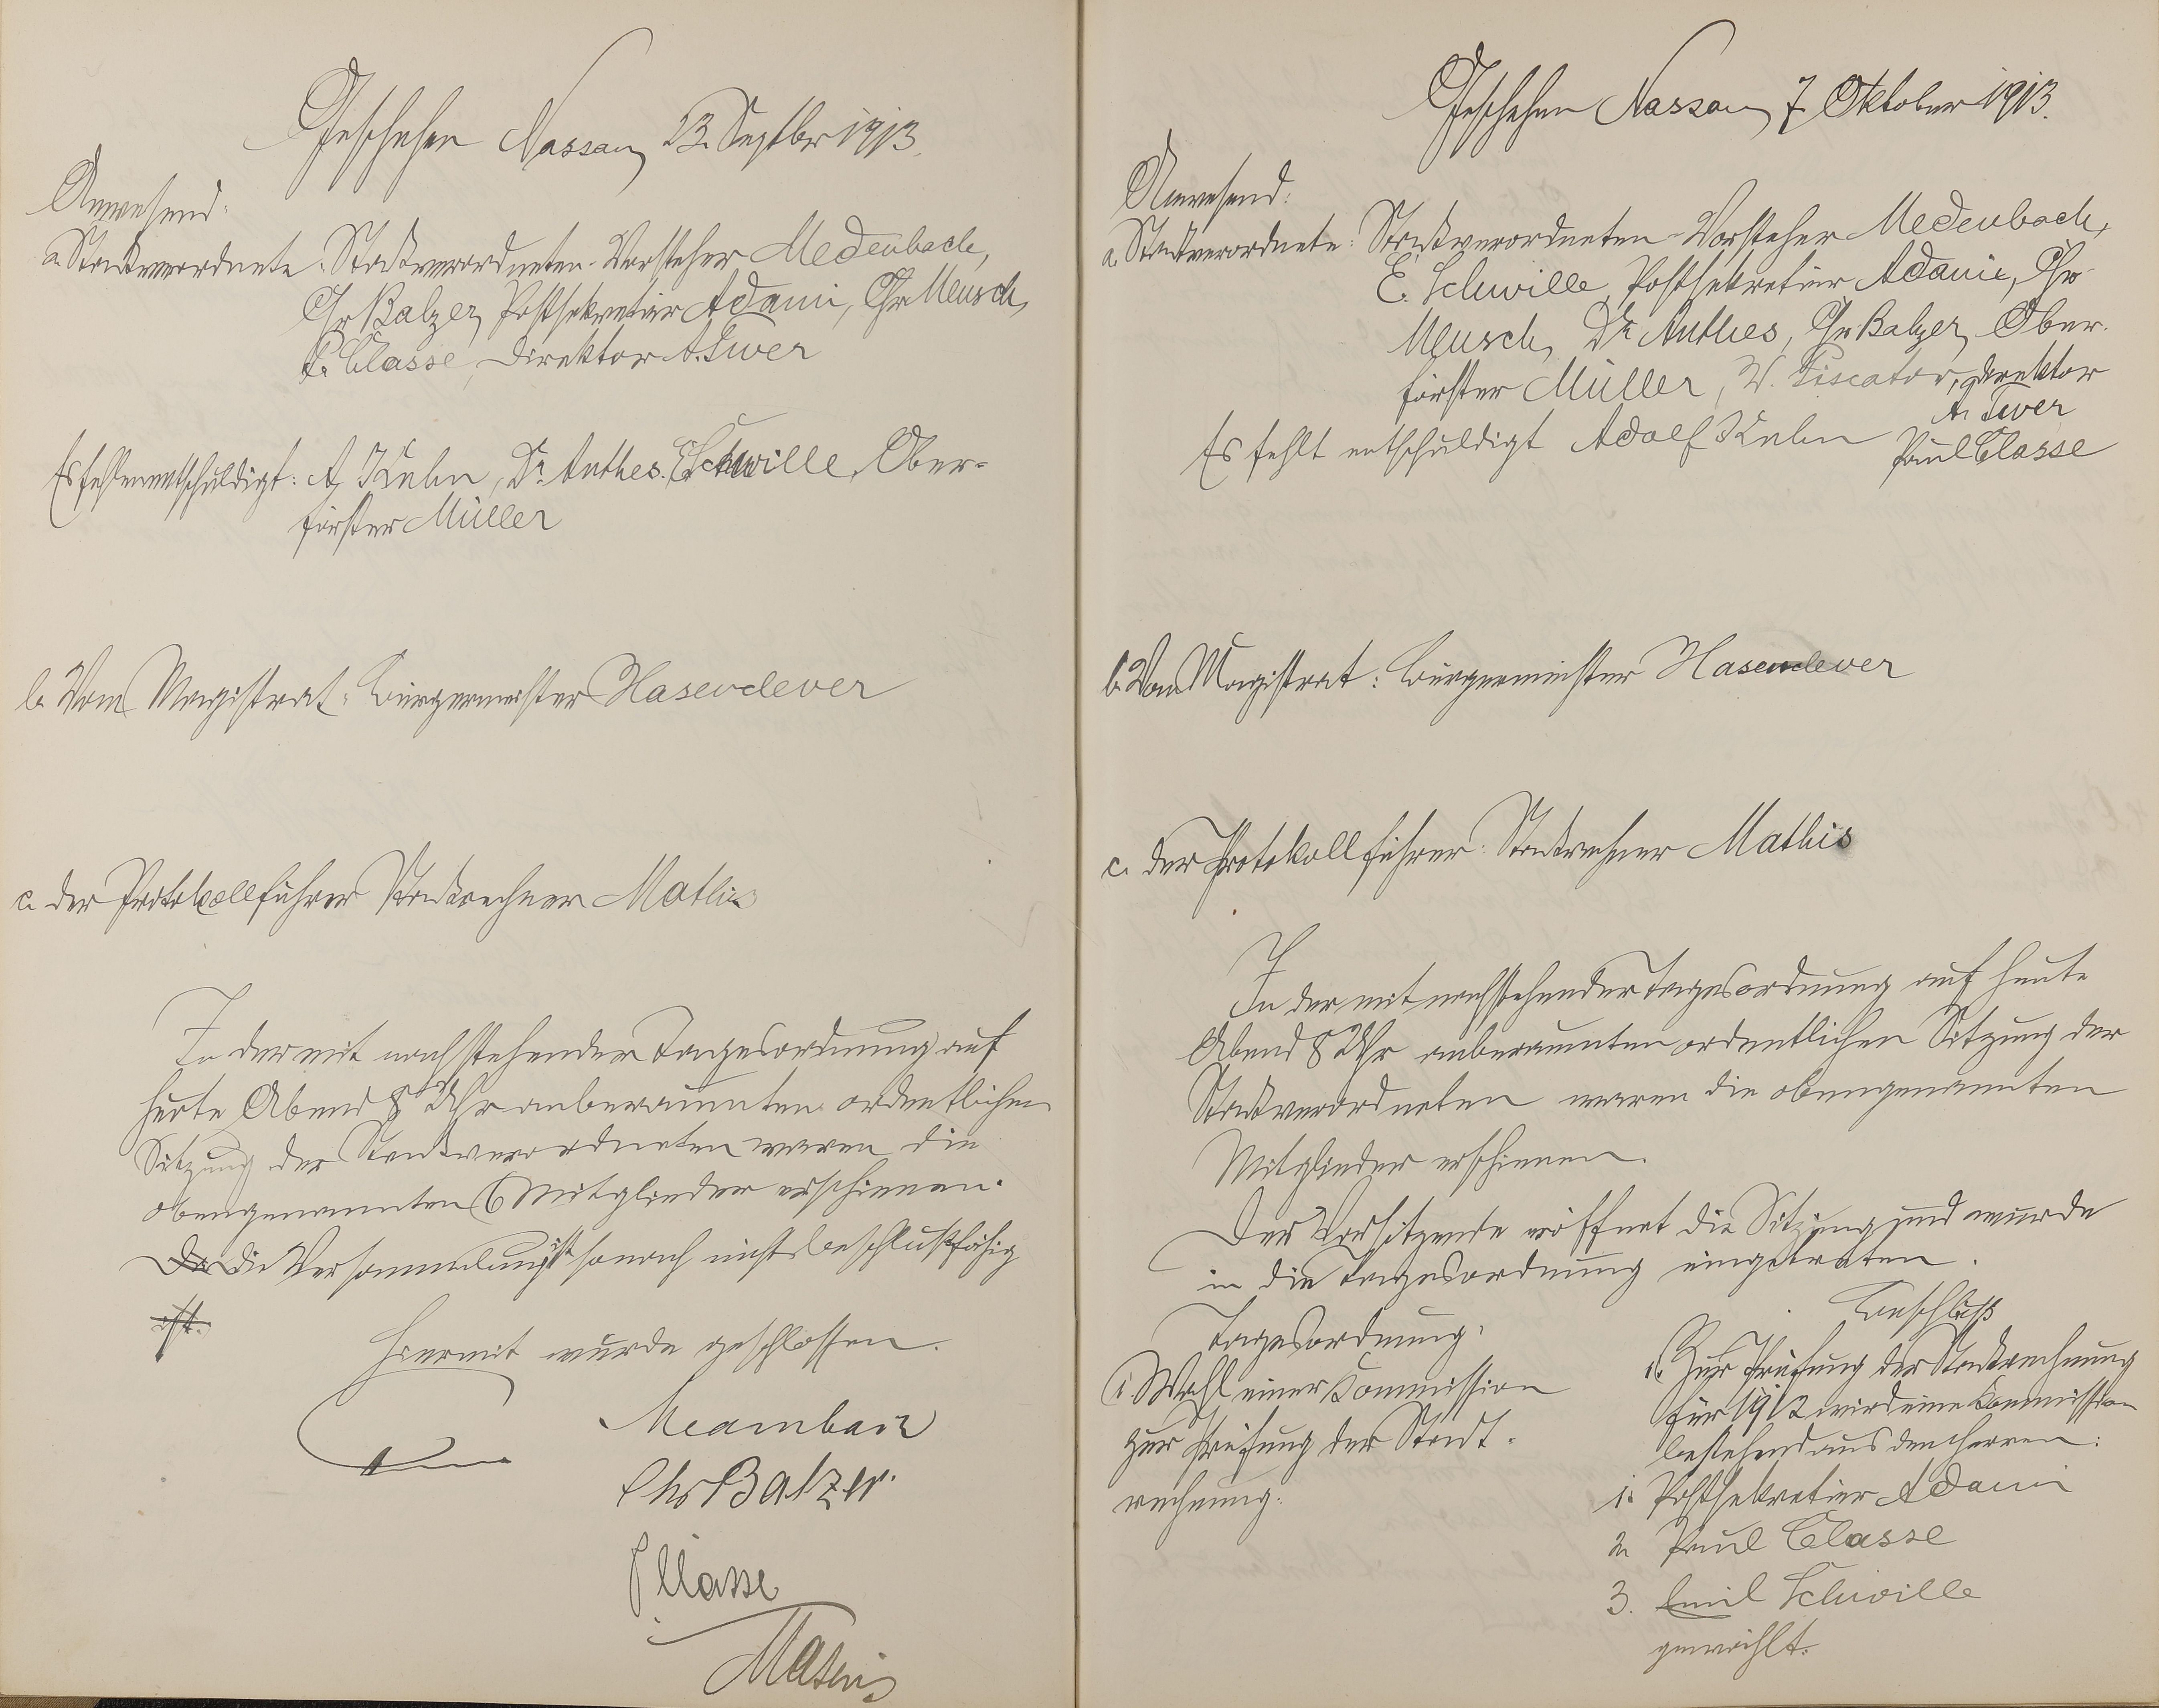 Geschehen Nassau, 23. Septbr 1913.
Anwesend:
a. Stadtverordnete: Stadtverordneten-Vorsteher Medenbach,
Chr Balzer, Postsekretär Adami, Chr Meusch,
P. Classe, Direktor A. Twer
Es fehlen entschuldigt: A. Kuhn, Dr. Anthes. E Schwille, Ober-
förster Müller
b. Vom Magistrat: Bürgermeister Hasenclever
c. der Protokollführer Stadtrechner Mathis
In der mit nachstehender Tagesordnung auf
heute Abend 8 Uhr anberaumten ordentlichen
Sitzung der Stadtverordneten waren die
obengenannten 6 Mitglieder erschienen.
Da die Versammlung ist sonach nicht beschlußfähig
ist.
Hiermit wurde geschlossen.
Medenbach
Chr Balzer.
P Classe
Mathis
Geschehen Nassau, 7. Oktober 1913.
Anwesend:
a. Stadtverordnete: Stadtverordneten-Vorsteher Medenbach,
E. Schwille, Postsekretär Adami, Chr
Meusch, Dr. Anthes, Chr Balzer, Ober-
förster Müller, W. Piscator, Direktor
A. Twer
Es fehlt entschuldigt Adolf Kuhn Paul Classe
b. Vom Magistrat: Bürgermeister Hasenclever
c. der Protokollführer: Stadtrechner Mathis
In der mit nachstehender Tagesordnung auf heute
Abend 8 Uhr anberaumten ordentlichen Sitzung der
Stadtverordneten waren die obengenannten
Mitglieder erschienen.
Der Vorsitzende eröffnet die Sitzung und wurde
in die Tagesordnung eingetreten.
Tagesordnung.
1. Wahl einer Kommission
zur Prüfung der Stadt-
rechnung.
Beschluß
1. Zur Prüfung der Stadtrechnung
für 1912 wird eine Kommission
bestehend aus den Herren:
1. Postsekretär Adami
2. Paul Classe
3. Emil Schwille
gewählt.